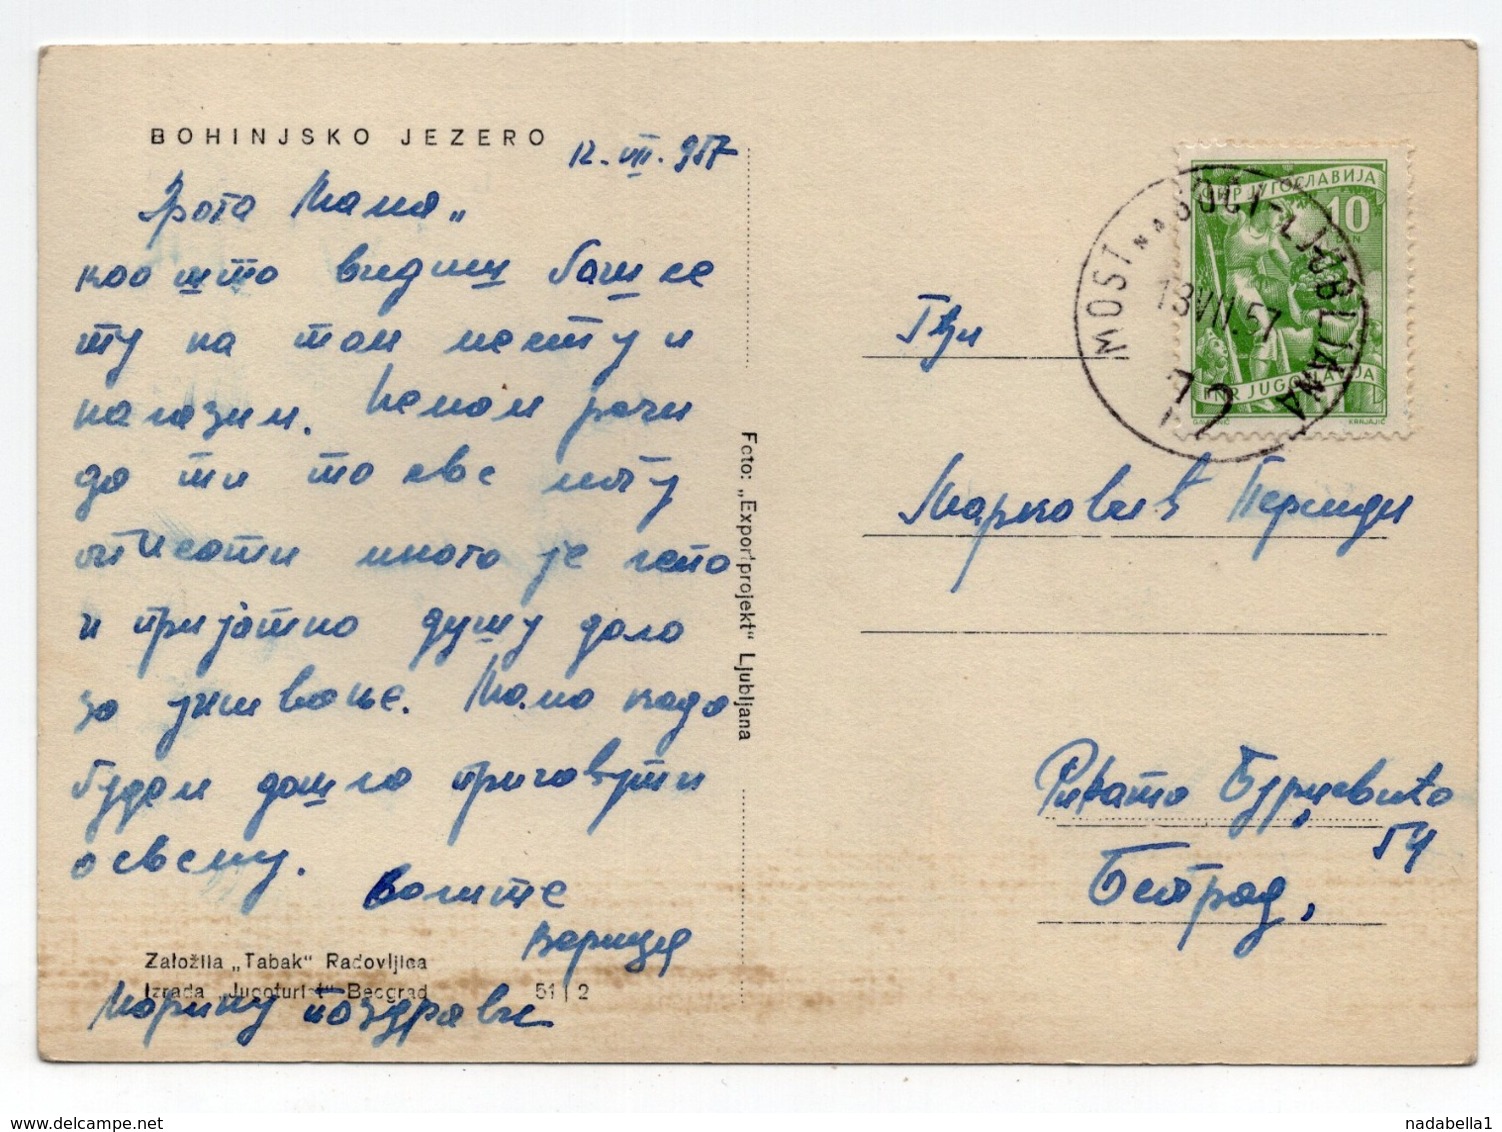 BOHINJSKO JEZERO
12. VII. 957
Драга Мама,,
као што видиш баш се
ту на том месту и
налазим. Немам речи
да ти то све могу
описати много је лепо
и пријатно душу дало
за уживање. Мама када
будем дошла причаћути
о свему.
Воли те
Верица
Марину поздрави
Založila „Tabak“ Radovljica
Izrada „Jugoturist“ Beograd 51 | 2
Foto: „Exportprojekt“ Ljubljana
FNR JUGOSLAVIJA
10
DIN
FNR JUGOSLAVIJA
KRNJAJIĆ
MOST NA SOČI-LJUBLJANA
13 VII. 57
72
Гђи
Марковић Персиди
Ђурђевића
54
Београд,
delcampe.net
nadabella1